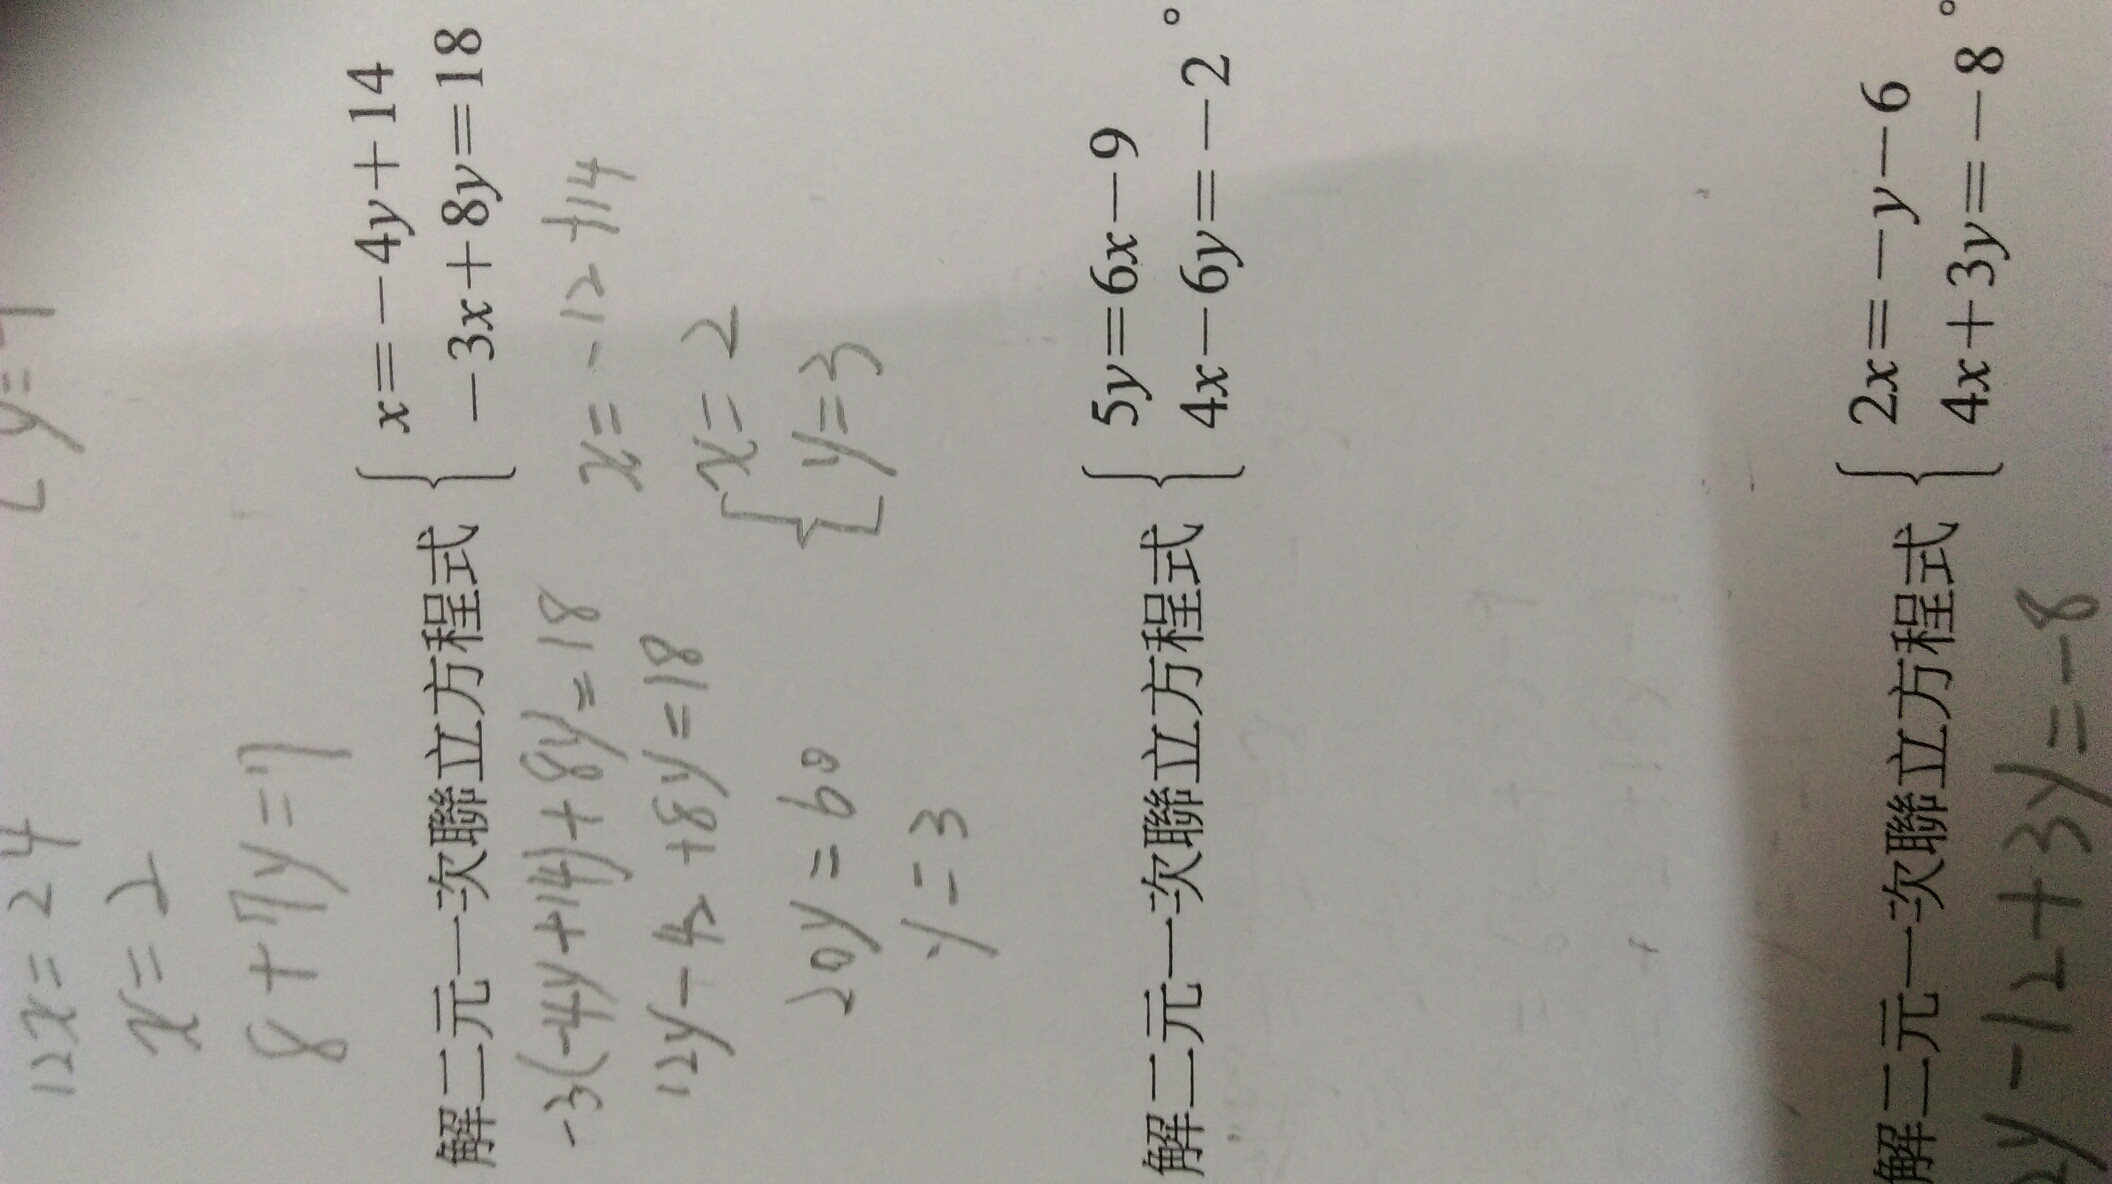 12x=24
x=2
8+7y=1
解二元一次聯立方程式 { x=-4y+14
-3x+8y=18
-3(-4y+14)+8y=18
12y-42+8y=18
20y=60
y=3
x=-12+14
{ x=2
y=3
解二元一次聯立方程式 { 5y=6x-9
4x-6y=-2 。
解二元一次聯立方程式 { 2x=-y-6
4x+3y=-8 。
y-12+3y=-8